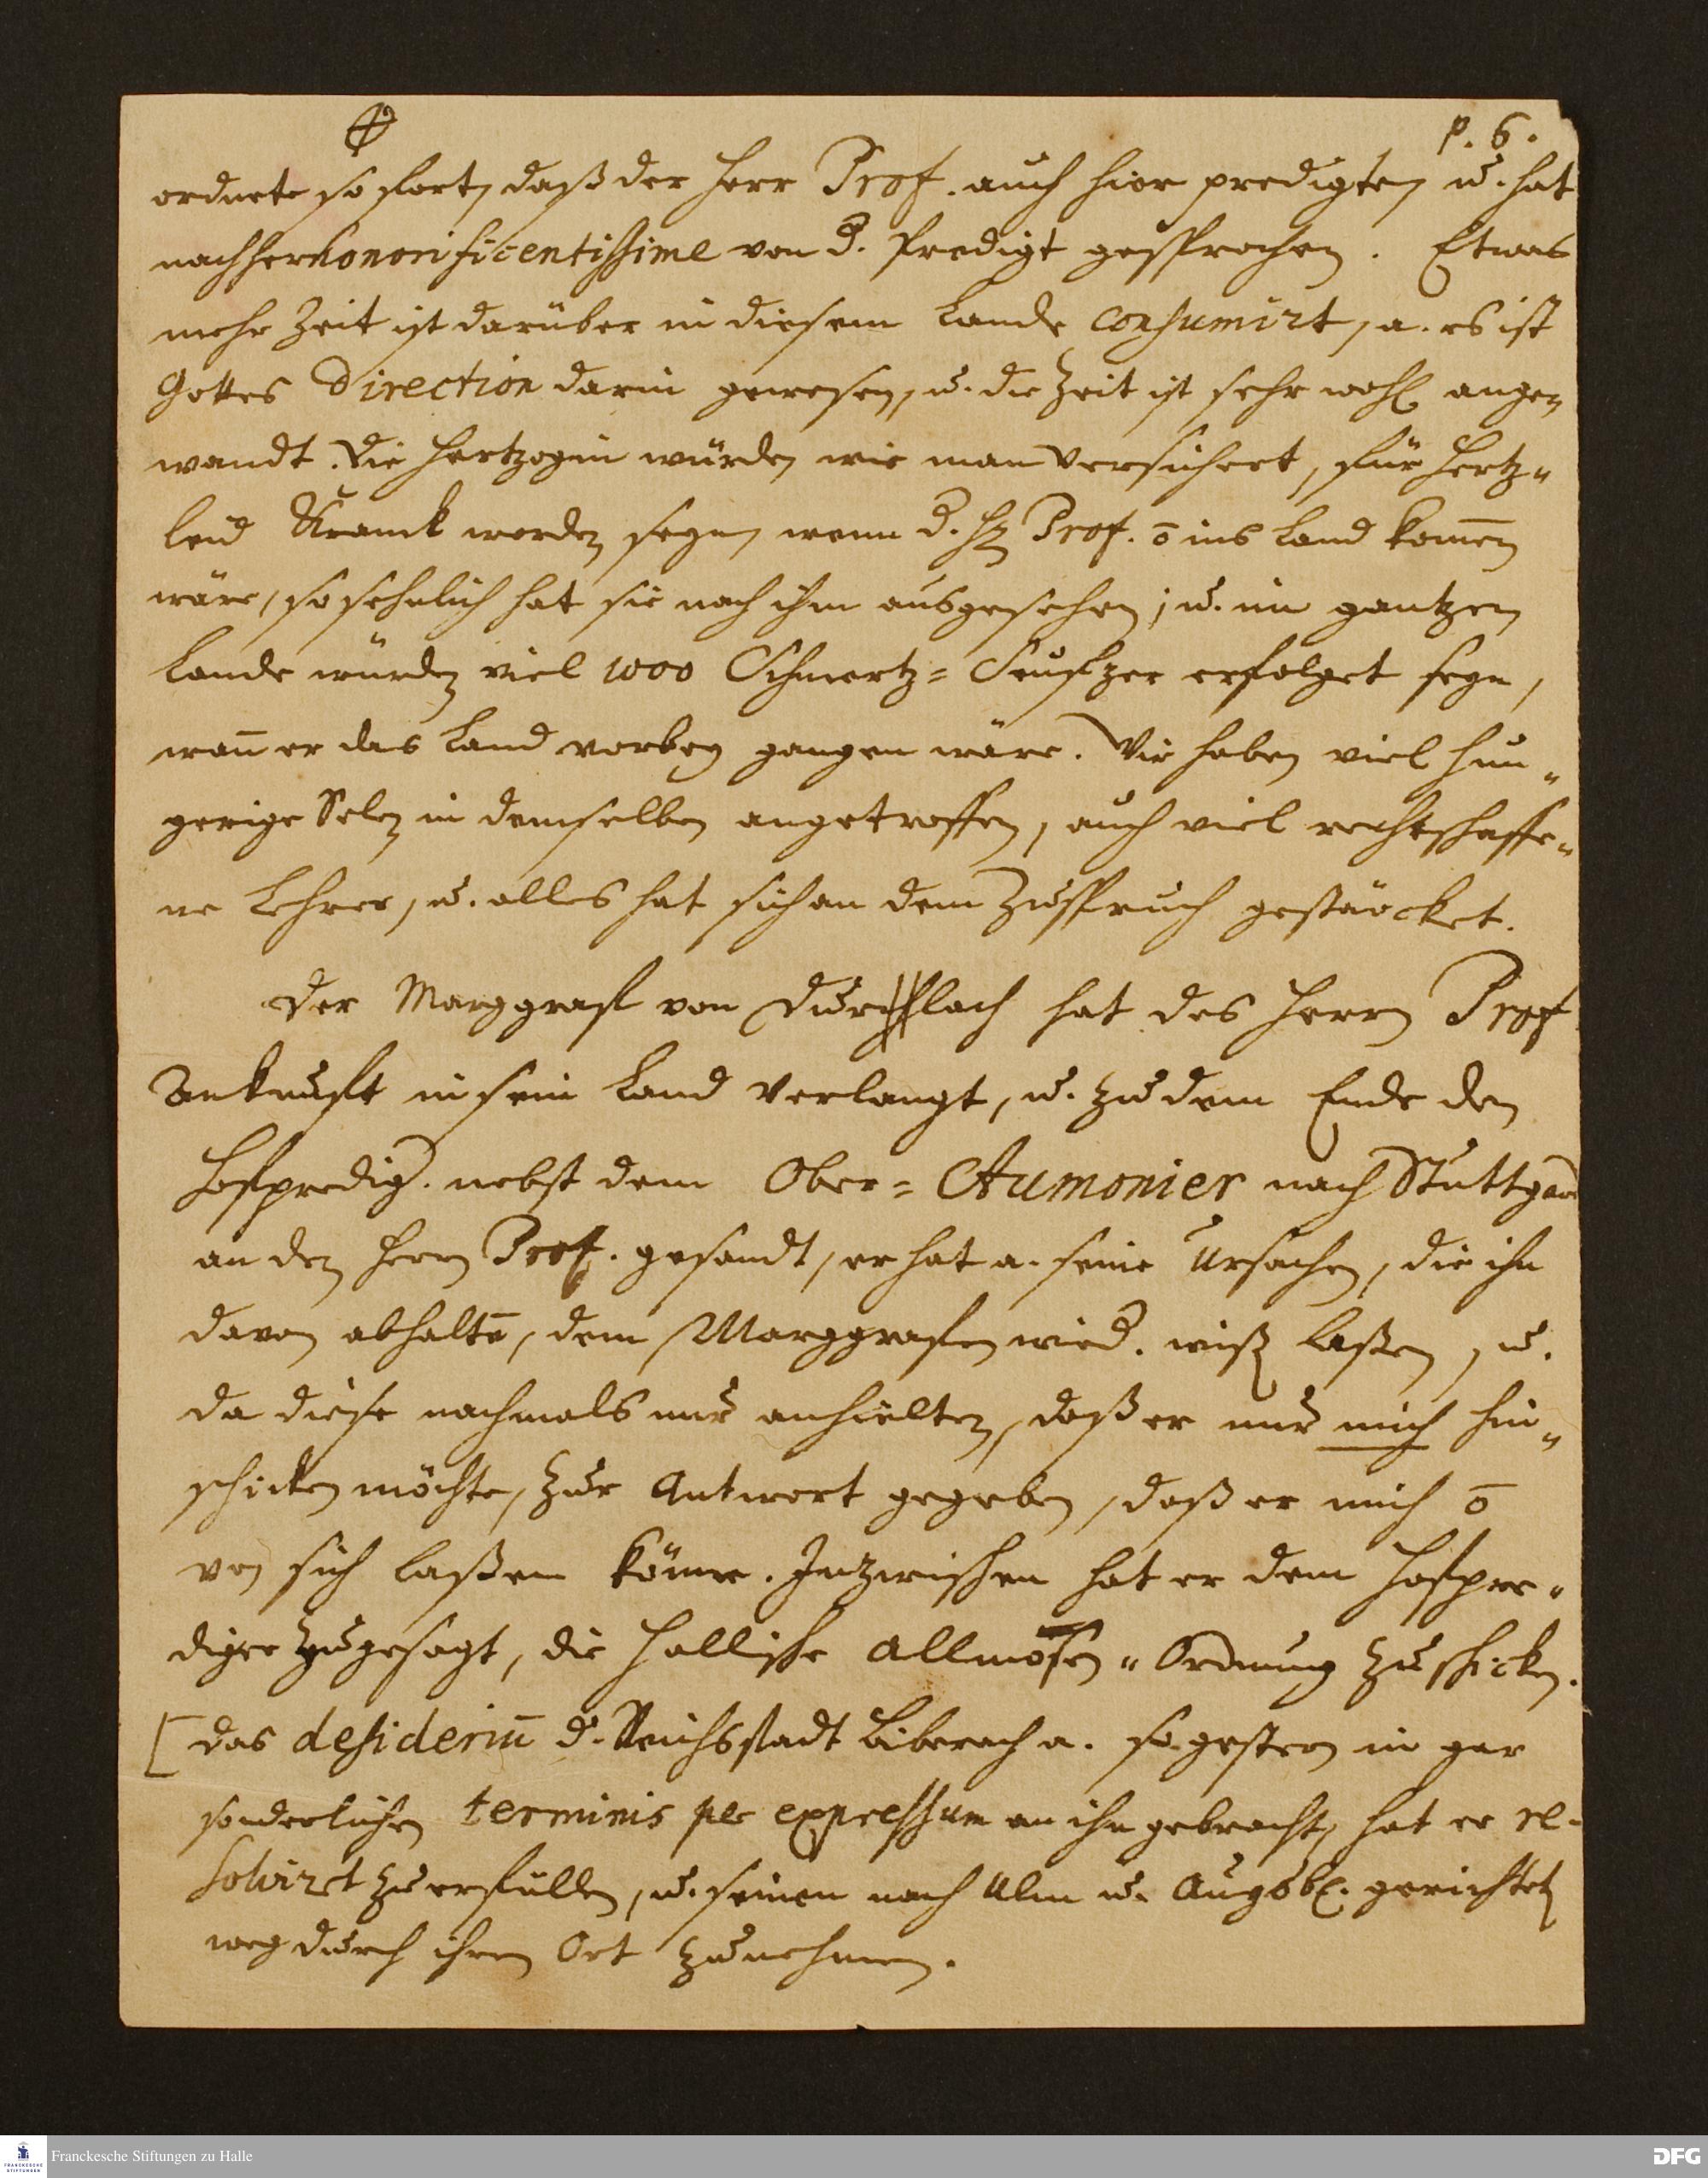 p. 6.
ordnete so fort, daß der Herr Prof. auch hier predigte, u. hat
nachher honorificentissime von d. Predigt gesprochen. Etwas
mehr Zeit ist darüber in diesem Lande consumirt, a. es ist
Gottes direction darin gewesen, u. die Zeit ist sehr wohl ange-
wandt. Die Hertzogin würden wie man versichert, für Hertz-
leid Kranck worden seyn, wenn d. H. Prof. ō ins Land kom̄en
wäre, so sehnlich hat sie nach ihm ausgesehen; u. im gantzen
Lande würden viel 1000 Schmertz-Seufzer erfolget seyn,
wan̄ er das Land vorbey gangen wäre. Wir haben viel hun-
gerige Selen in demselben angetroffen, auch viel rechtschaffe-
ne Lehrer, u. alles hat sich an dem Zuspruch gestärcket.
Der Marggraf von Durlach hat des Herrn Prof
Ankunft in sein Land verlangt, u. zu dem Ende den
Hofpredig. nebst dem Ober-Aumonier nach Stuttgard
an den Herrn Prof. gesandt, er hat a. seine Ursachen, die ihn
davon abhaltē, dem Marggrafen wied. wißen laßen, u.
da diese nachmals nur anhielten, daß er nur mich hin-
schicken möchte, zur Antwort gegeben, daß er mich ō
von sich laßen könne. Inzwischen hat er dem Hofpre-
diger zugesagt, die Hallische Allmosen-Ordnung zu schicken.
[das desideriū d. Reichsstadt Biberach a. so gestern in gar
sonderlichen terminis per expressum an ihn gebracht, hat er re-
solviret zu erfüllen, u. seinen nach Ulm u. Augsb. gerichteten
weg durch ihren Ort zu nehmen.
Franckesche Stiftungen zu Halle
FRANCKESCHE STIFTUNGEN
DFG